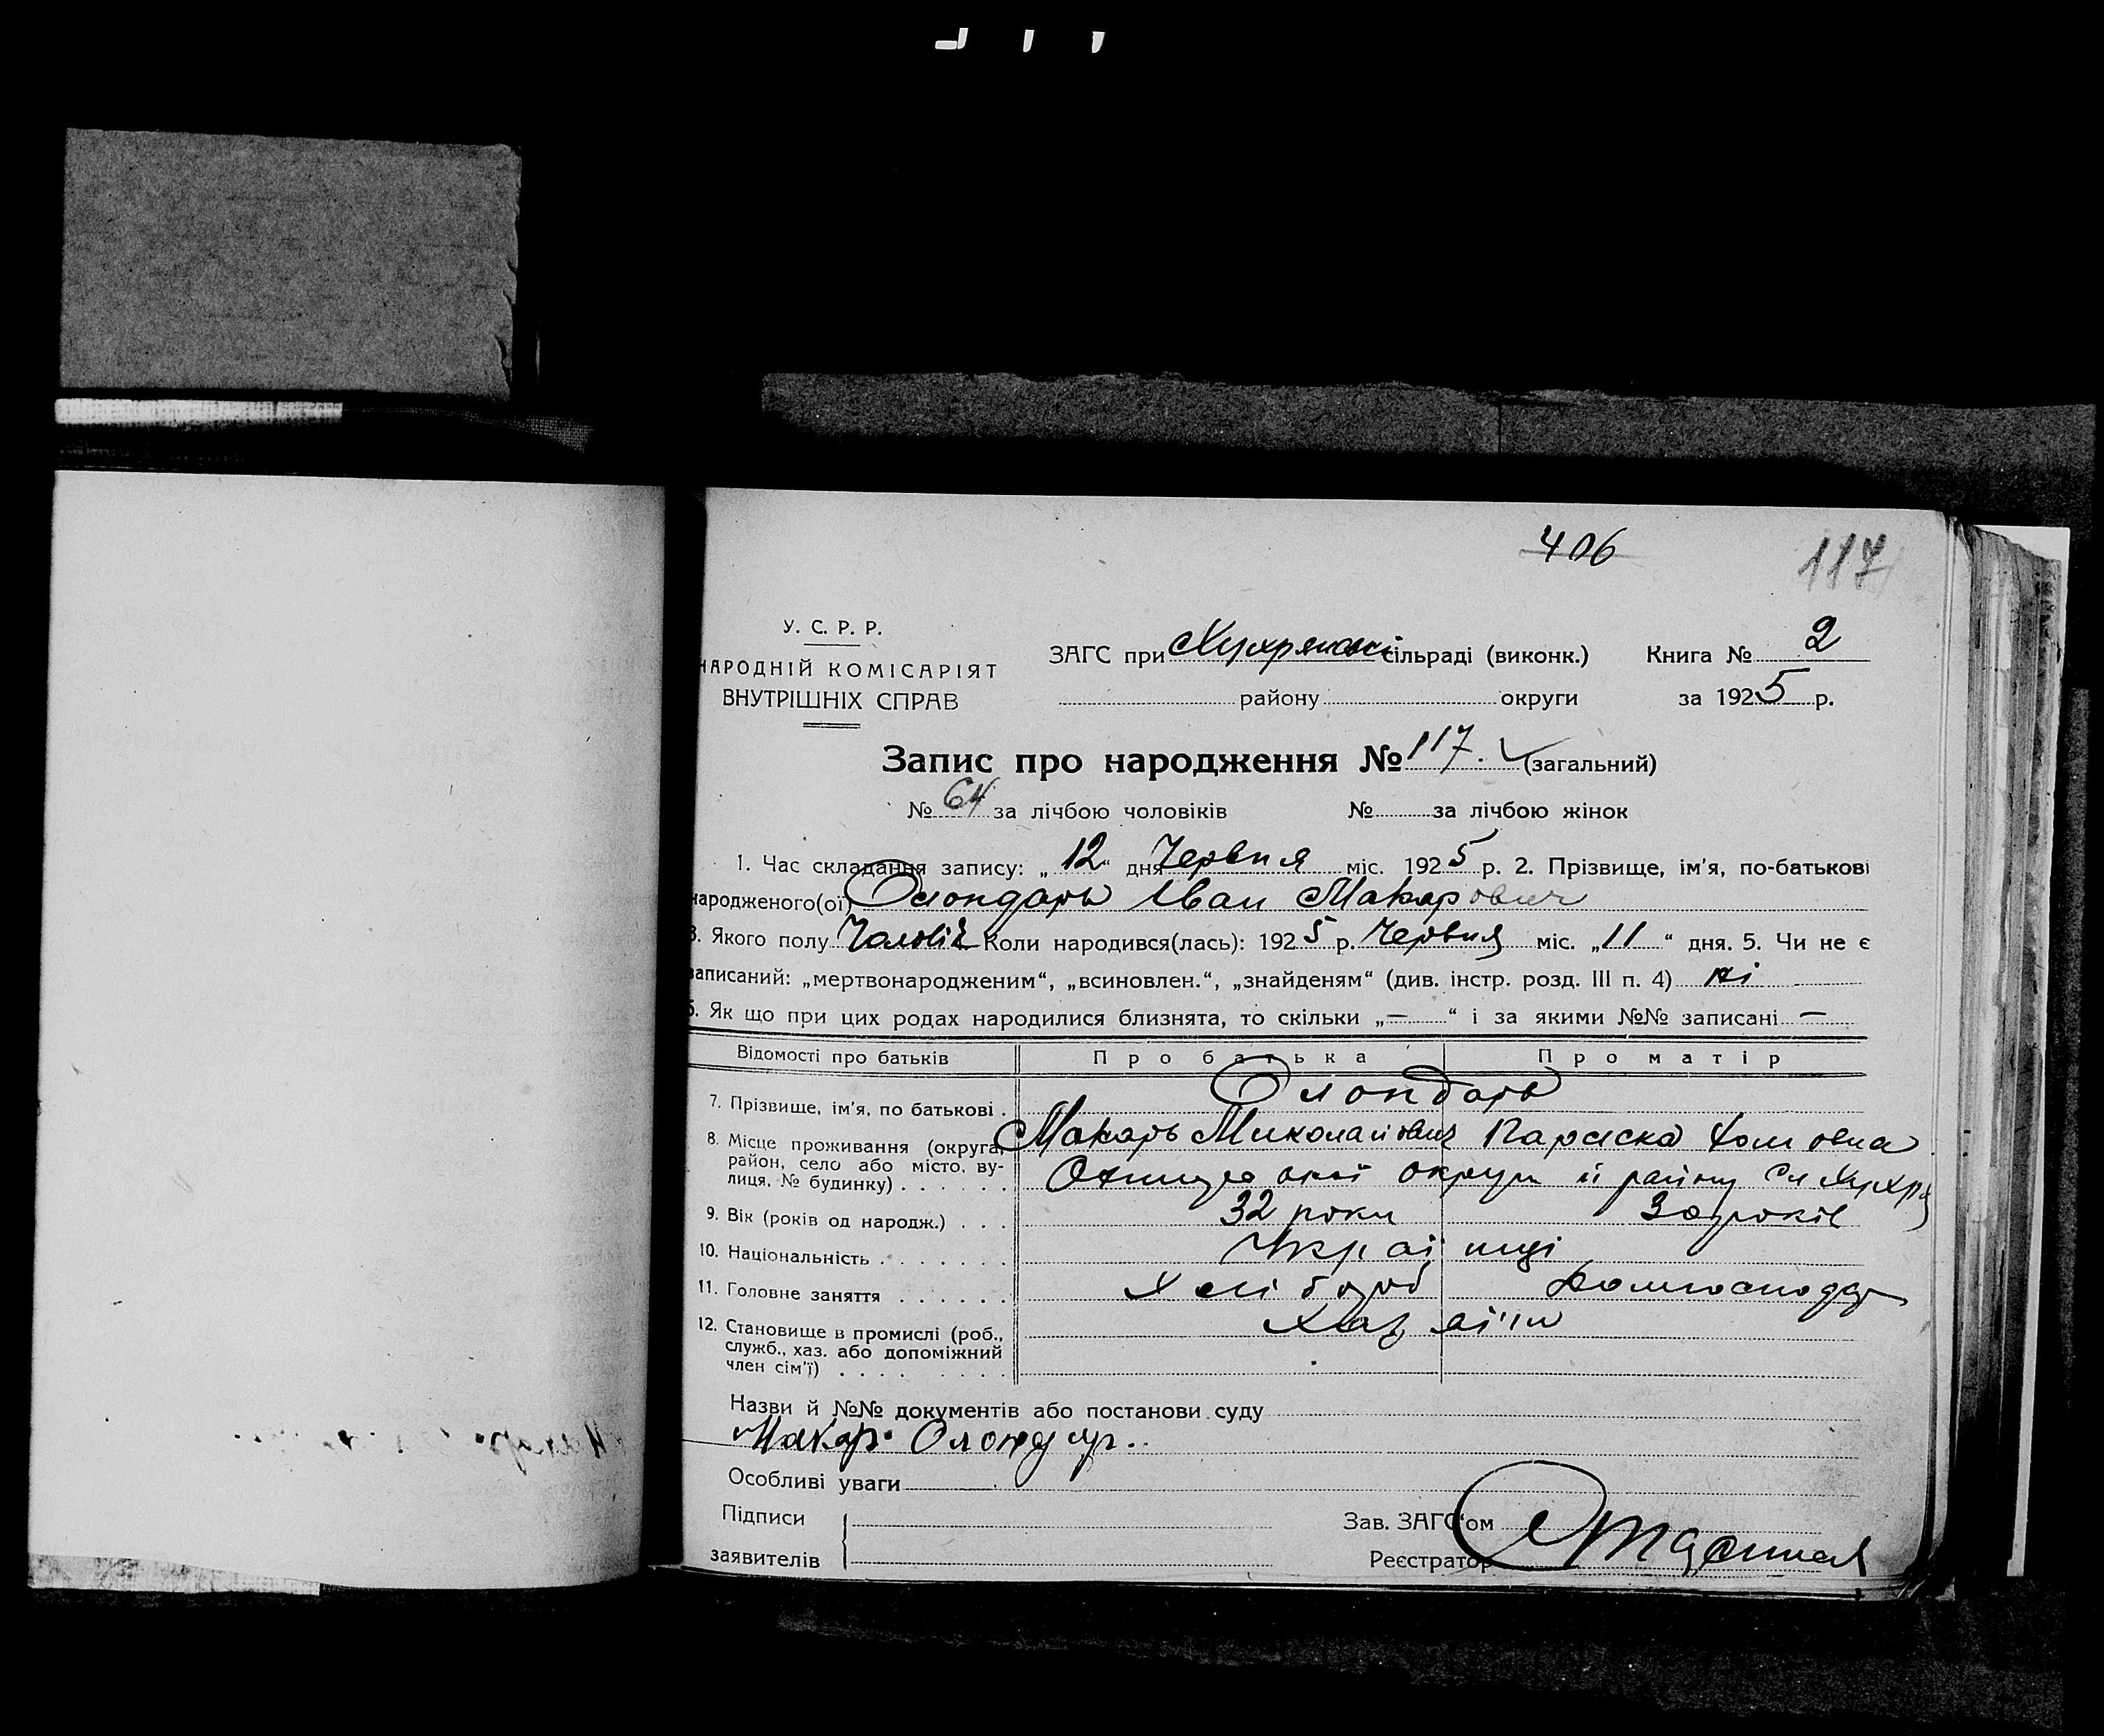 406
117
У. С. Р. Р.
НАРОДНІЙ КОМІСАРІЯТ
ВНУТРІШНІХ СПРАВ
ЗАГС при сільраді (виконк.) Книга № 2
району округи за 1925 р.
Запис про народження № 117. (загальний)
№ 64 за лічбою чоловіків № за лічбою жінок
1. Час складання запису: „12“ дня Червня міс. 1925 р. 2. Прізвище, ім'я, по-батькові
народженого(ої) Олондарь Іван Макарович
3. Якого полу Чоловіч Коли народився(лась): 1925 р. Червня міс. „11“ дня. 5. Чи не є
записаний: „мертвонародженим“, „всиновлен.“, „знайденям“ (див. інстр. розд. III п. 4) ні
6. Як що при цих родах народилися близнята, то скільки „—“ і за якими №№ записані —
Відомості про батьків Про батька Про матір
7. Прізвище, ім'я, по батькові . Олондарь
Макарь Миколайович Параска
8. Місце проживання (округа, район, село або місто, вулиця, № будинку) . . . . . . округи й району
9. Вік (років од народж.) . . . 32 роки 30 років
10. Національність . . . . . . . Українці
11. Головне заняття . . . . . . Хлібороб Домгосподар
12. Становище в промислі (роб., служб., хаз. або допоміжний член сім'ї) . . . . . . . . Хазяїін
Назви й №№ документів або постанови суду
Макар Олондар..
Особливі уваги
Підписи
заявителів
Зав. ЗАГС'ом
Реєстратор